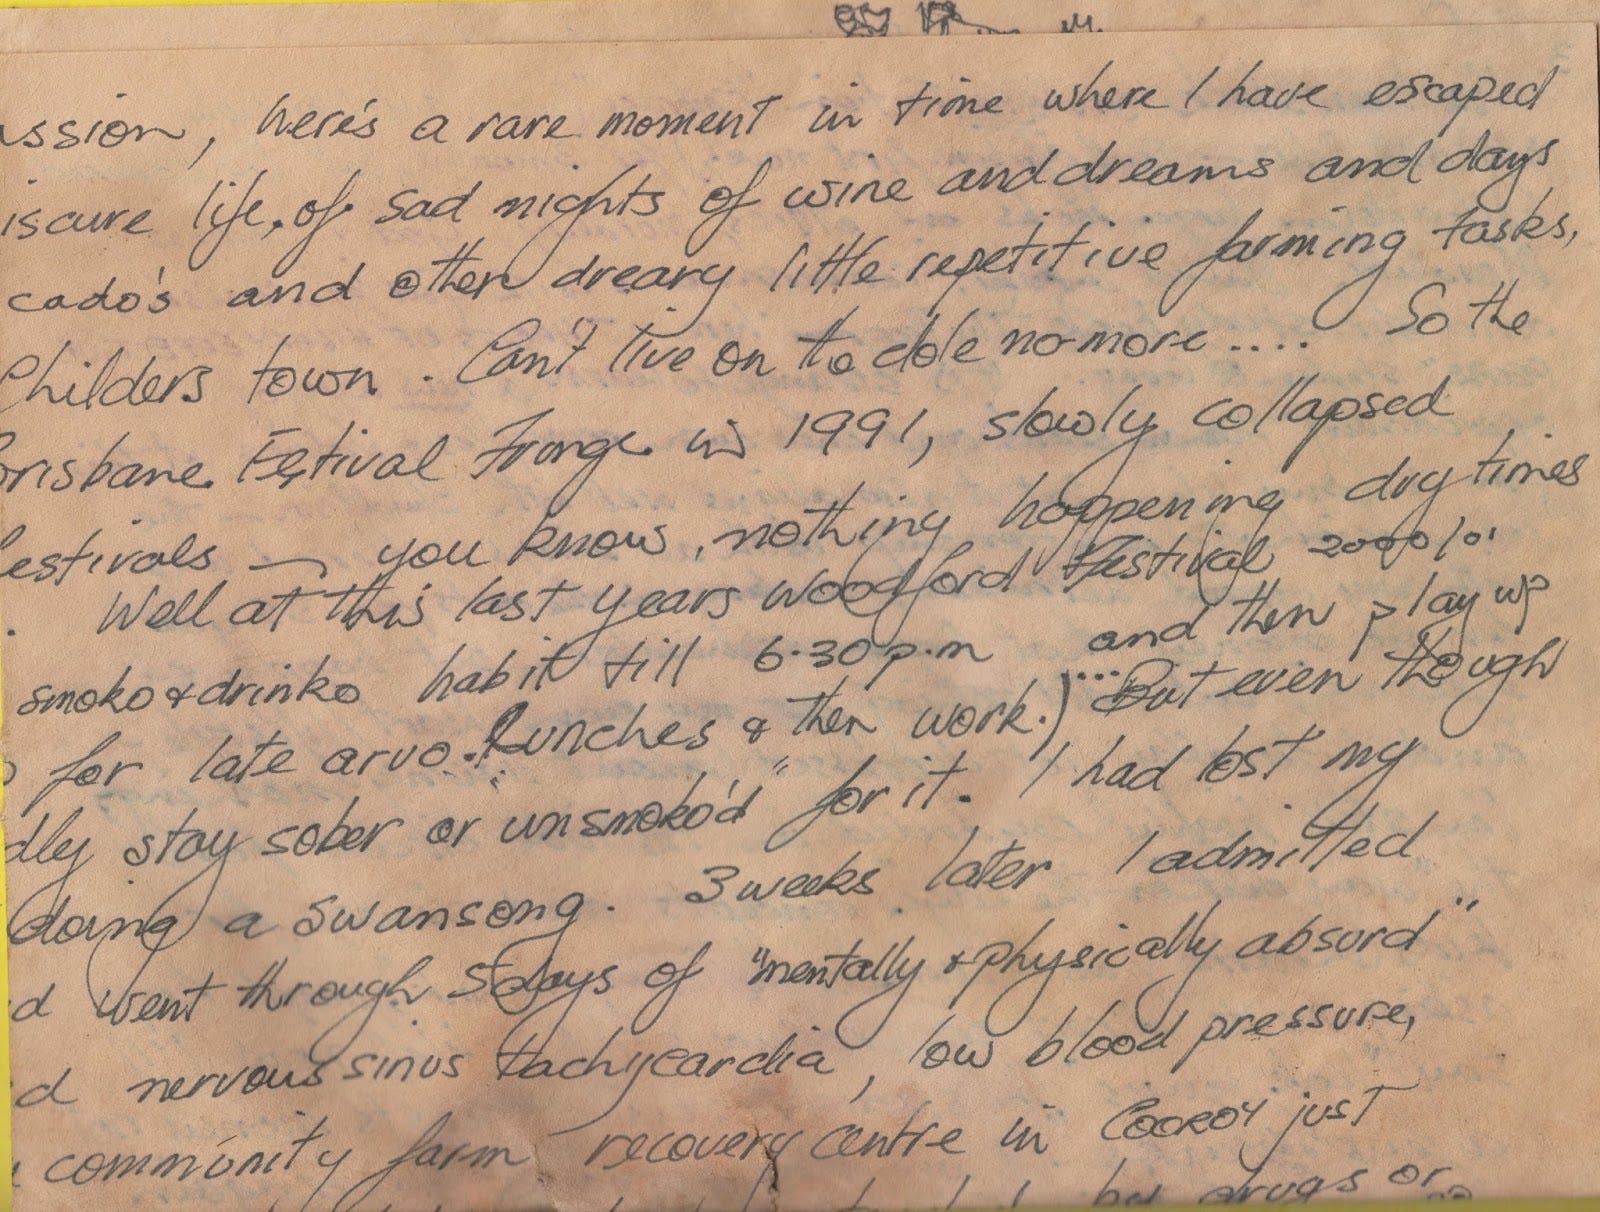 ussion, here's a rare moment in time where I have escaped
iscure life, of sad nights of wine and dreams and days
cado's and other dreary little repetitive farming tasks,
Childers town. Can't live on the dole no-more.... So the
Brisbane Festival Fringe in 1991, slowly collapsed
festivals — you know, nothing happening dry times
. Well at this last years Woodford Festival 2000/01
smoko & drinko habit till 6.30p.m and then play up
for late arvo. lunches & then work.) ... But even though
dly stay sober or unsmoko'd" for it. I had lost my
doing a swansong. 3 weeks later I admitted
d went through 5 days of "mentally & physically absurd"
d nervous sinus tachycardia, low blood pressure,
community farm recovery centre in COOROY just
by drugs or